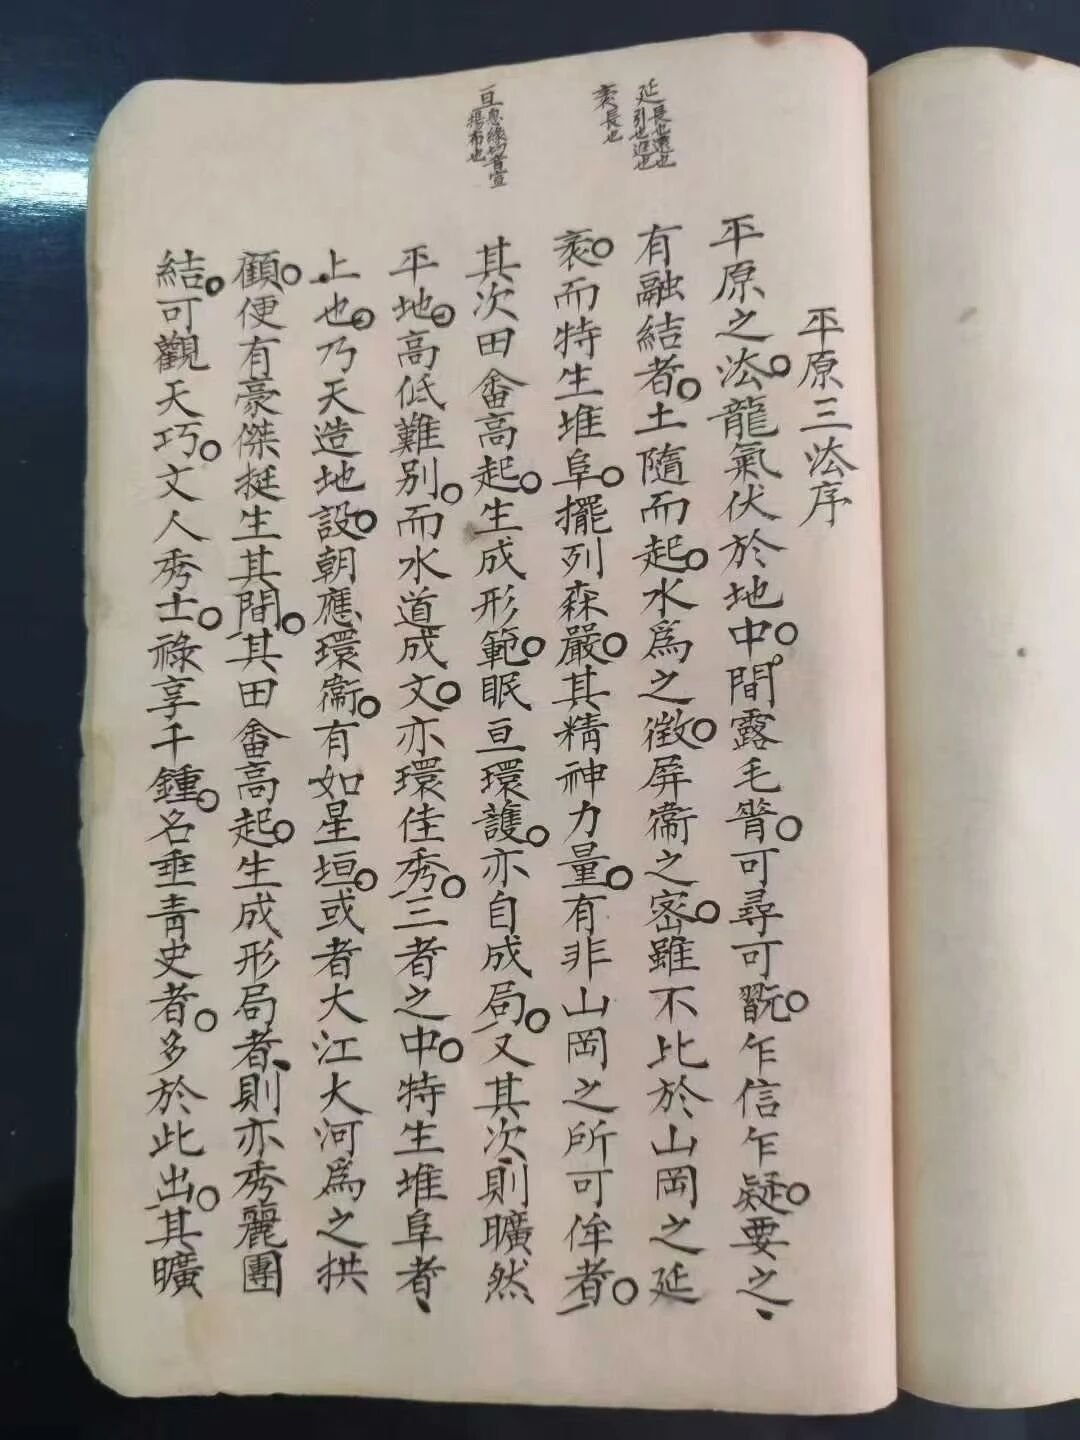 延長也遠也
引也進也
袤長也
亘息緣切音宣
揚布也
平原三法序
平原之法。龍氣伏於地中。間露毛脊。可尋可翫。乍信乍疑。要之、
有融結者。土隨而起。水爲之徵。屏衞之密。雖不比於山岡之延
袤。而特生堆阜。擺列森嚴。其精神力量。有非山岡之所可侔者。
其次田畬高起。生成形範。眠亘環護。亦自成局。又其次、則曠然
平地。高低難別。而水道成文。亦環佳秀。三者之中。特生堆阜者、
上也。乃天造地設。朝應環衞。有如星垣。或者大江大河爲之拱
顧。便有豪傑挺生其間。其田畬高起。生成形局者、則亦秀麗團
結。可觀天巧。文人秀士。祿享千鍾。名垂青史者。多於此出。其曠